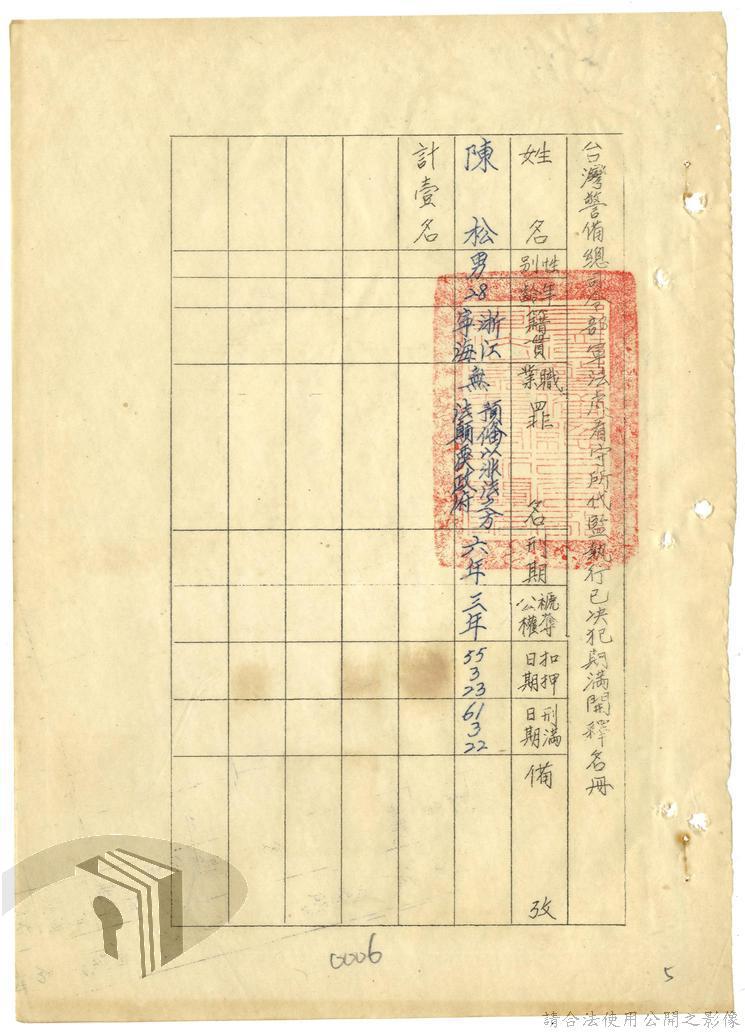 台灣警備總司令部軍法處看守所代監執行已决犯期滿開釋名冊
姓名
性別
年齡
籍貫
職業
罪名
刑期
褫奪公權
扣押日期
刑滿日期
備攷
陳松
男
28
浙江
寧海
無
預備以非法之方
法顛覆政府
六年
三年
55
3
23
61
3
22
計壹名
0006
5
請合法使用公開之影像